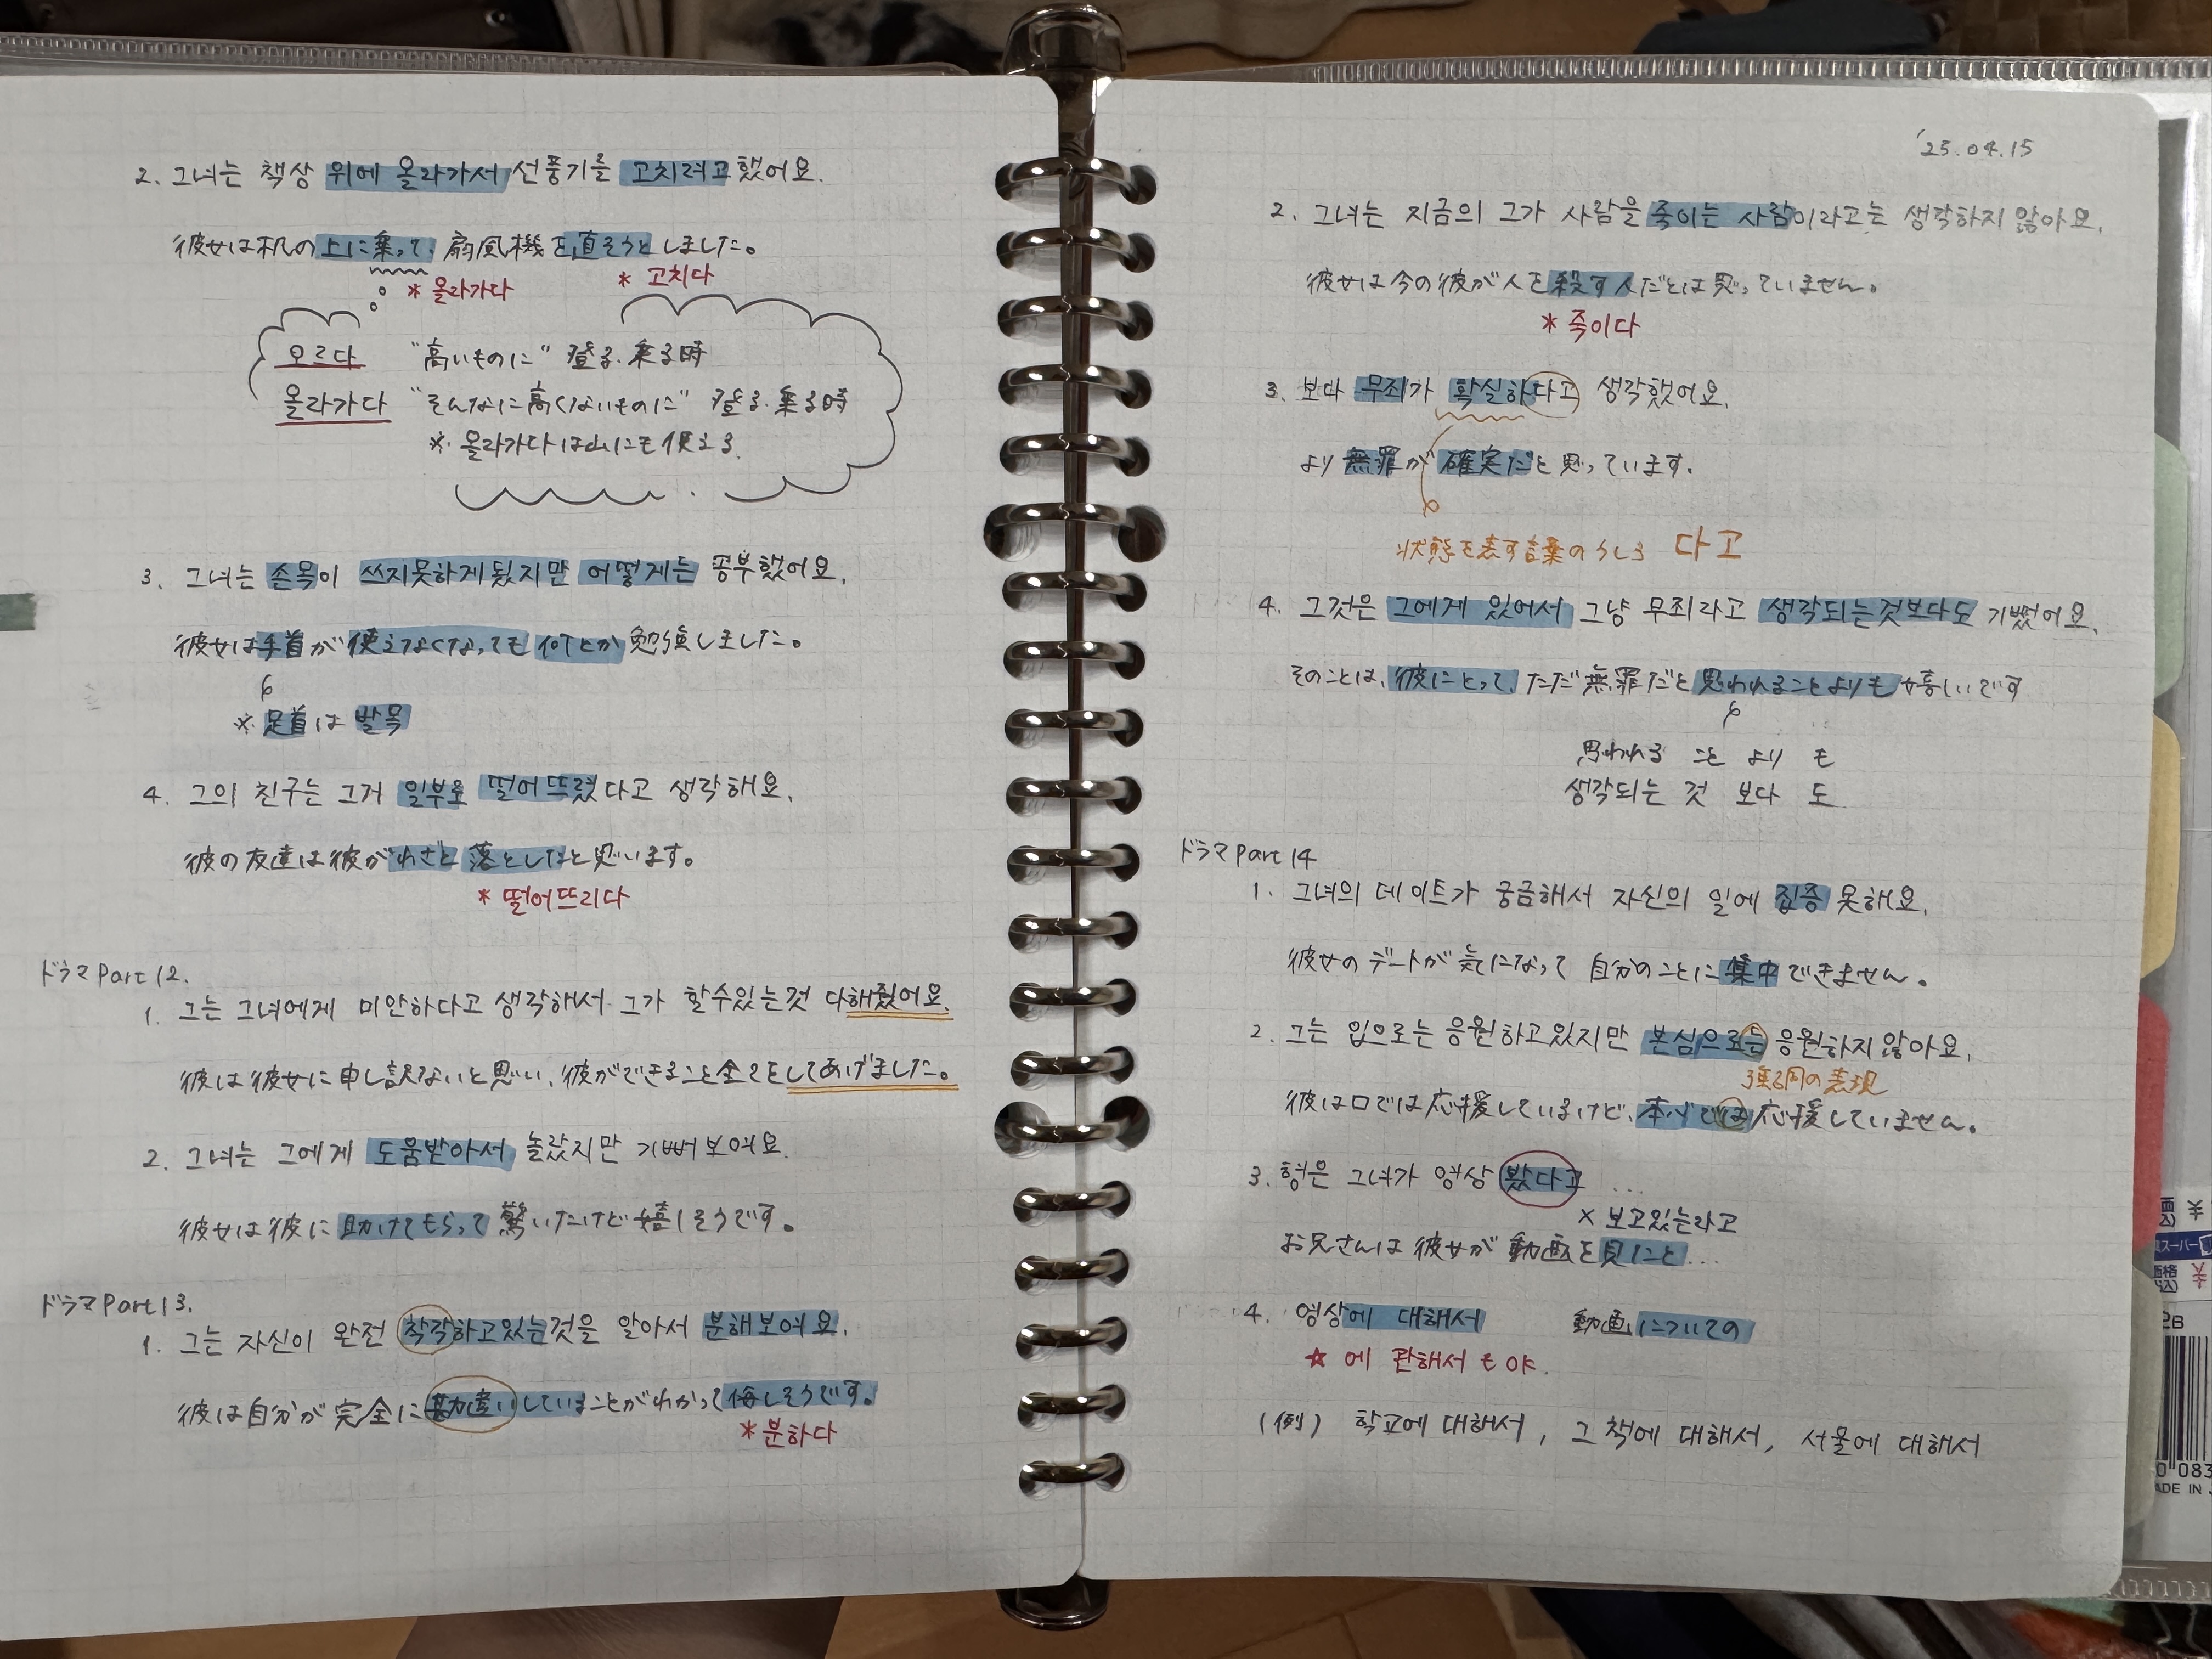 2. 그녀는 책상 위에 올라가서 선풍기를 고치려고 했어요.
彼女は机の上に乗って扇風機を直そうとしました。
* 올라가다 * 고치다
오르다 "高いものに" 登る. 乗る時
올라가다 "そんなに高くないものに" 登る. 乗る時
※ 올라가다は山にも使える.
3. 그녀는 손목이 쓰지못하게됬지만 어떻게는 공부했어요.
彼女は手首が使えなくなっても何とか勉強しました。
※ 足首は발목
4. 그의 친구는 그거 일부로 떨어뜨렸다고 생각해요.
彼の友達は彼がわざと落としたと思います。
* 떨어뜨리다
ドラマPart12.
1. 그는 그녀에게 미안하다고 생각해서 그가 할수있는것 다해줬어요.
彼は彼女に申し訳ないと思い、彼ができること全てをしてあげました。
2. 그녀는 그에게 도움받아서 놀랐지만 기뻐보여요.
彼女は彼に助けてもらって驚いたけど嬉しそうです。
ドラマPart13.
1. 그는 자신이 완전 착각하고있는것을 알아서 분해보여요.
彼は自分が完全に勘違いしていることがわかって悔しそうです。
* 분하다
'25.04.15
2. 그녀는 지금의 그가 사람을 죽이는 사람이라고는 생각하지 않아요.
彼女は今の彼が人を殺す人だとは思っていません。
* 죽이다
3. 보다 무죄가 확실하다고 생각했어요.
より無罪が確実だと思っています.
状態を表す言葉のうしろ 다고
4. 그것은 그에게 있어서 그냥 무죄라고 생각되는것보다도 기뻤어요.
そのことは、彼にとって、ただ無罪だと思われることよりも嬉しいです
思われる こと より も
생각되는 것 보다 도
ドラマPart14
1. 그녀의 데이트가 궁금해서 자신의 일에 집중 못해요.
彼女のデートが気になって自分のことに集中できません。
2. 그는 입으로는 응원하고있지만 본심으로는 응원하지 않아요.
強調の表現
彼は口では応援しているけど、本心では応援していません。
3. 형은 그녀가 영상 봤다고 ...
× 보고있는라고
お兄さんは彼女が動画を見たこと...
4. 영상에 대해서 動画についての
☆ 에 관해서 も OK.
(例) 학교에 대해서, 그 책에 대해서, 서울에 대해서
価格
スーパー
価格
2B
0 083
ADE IN